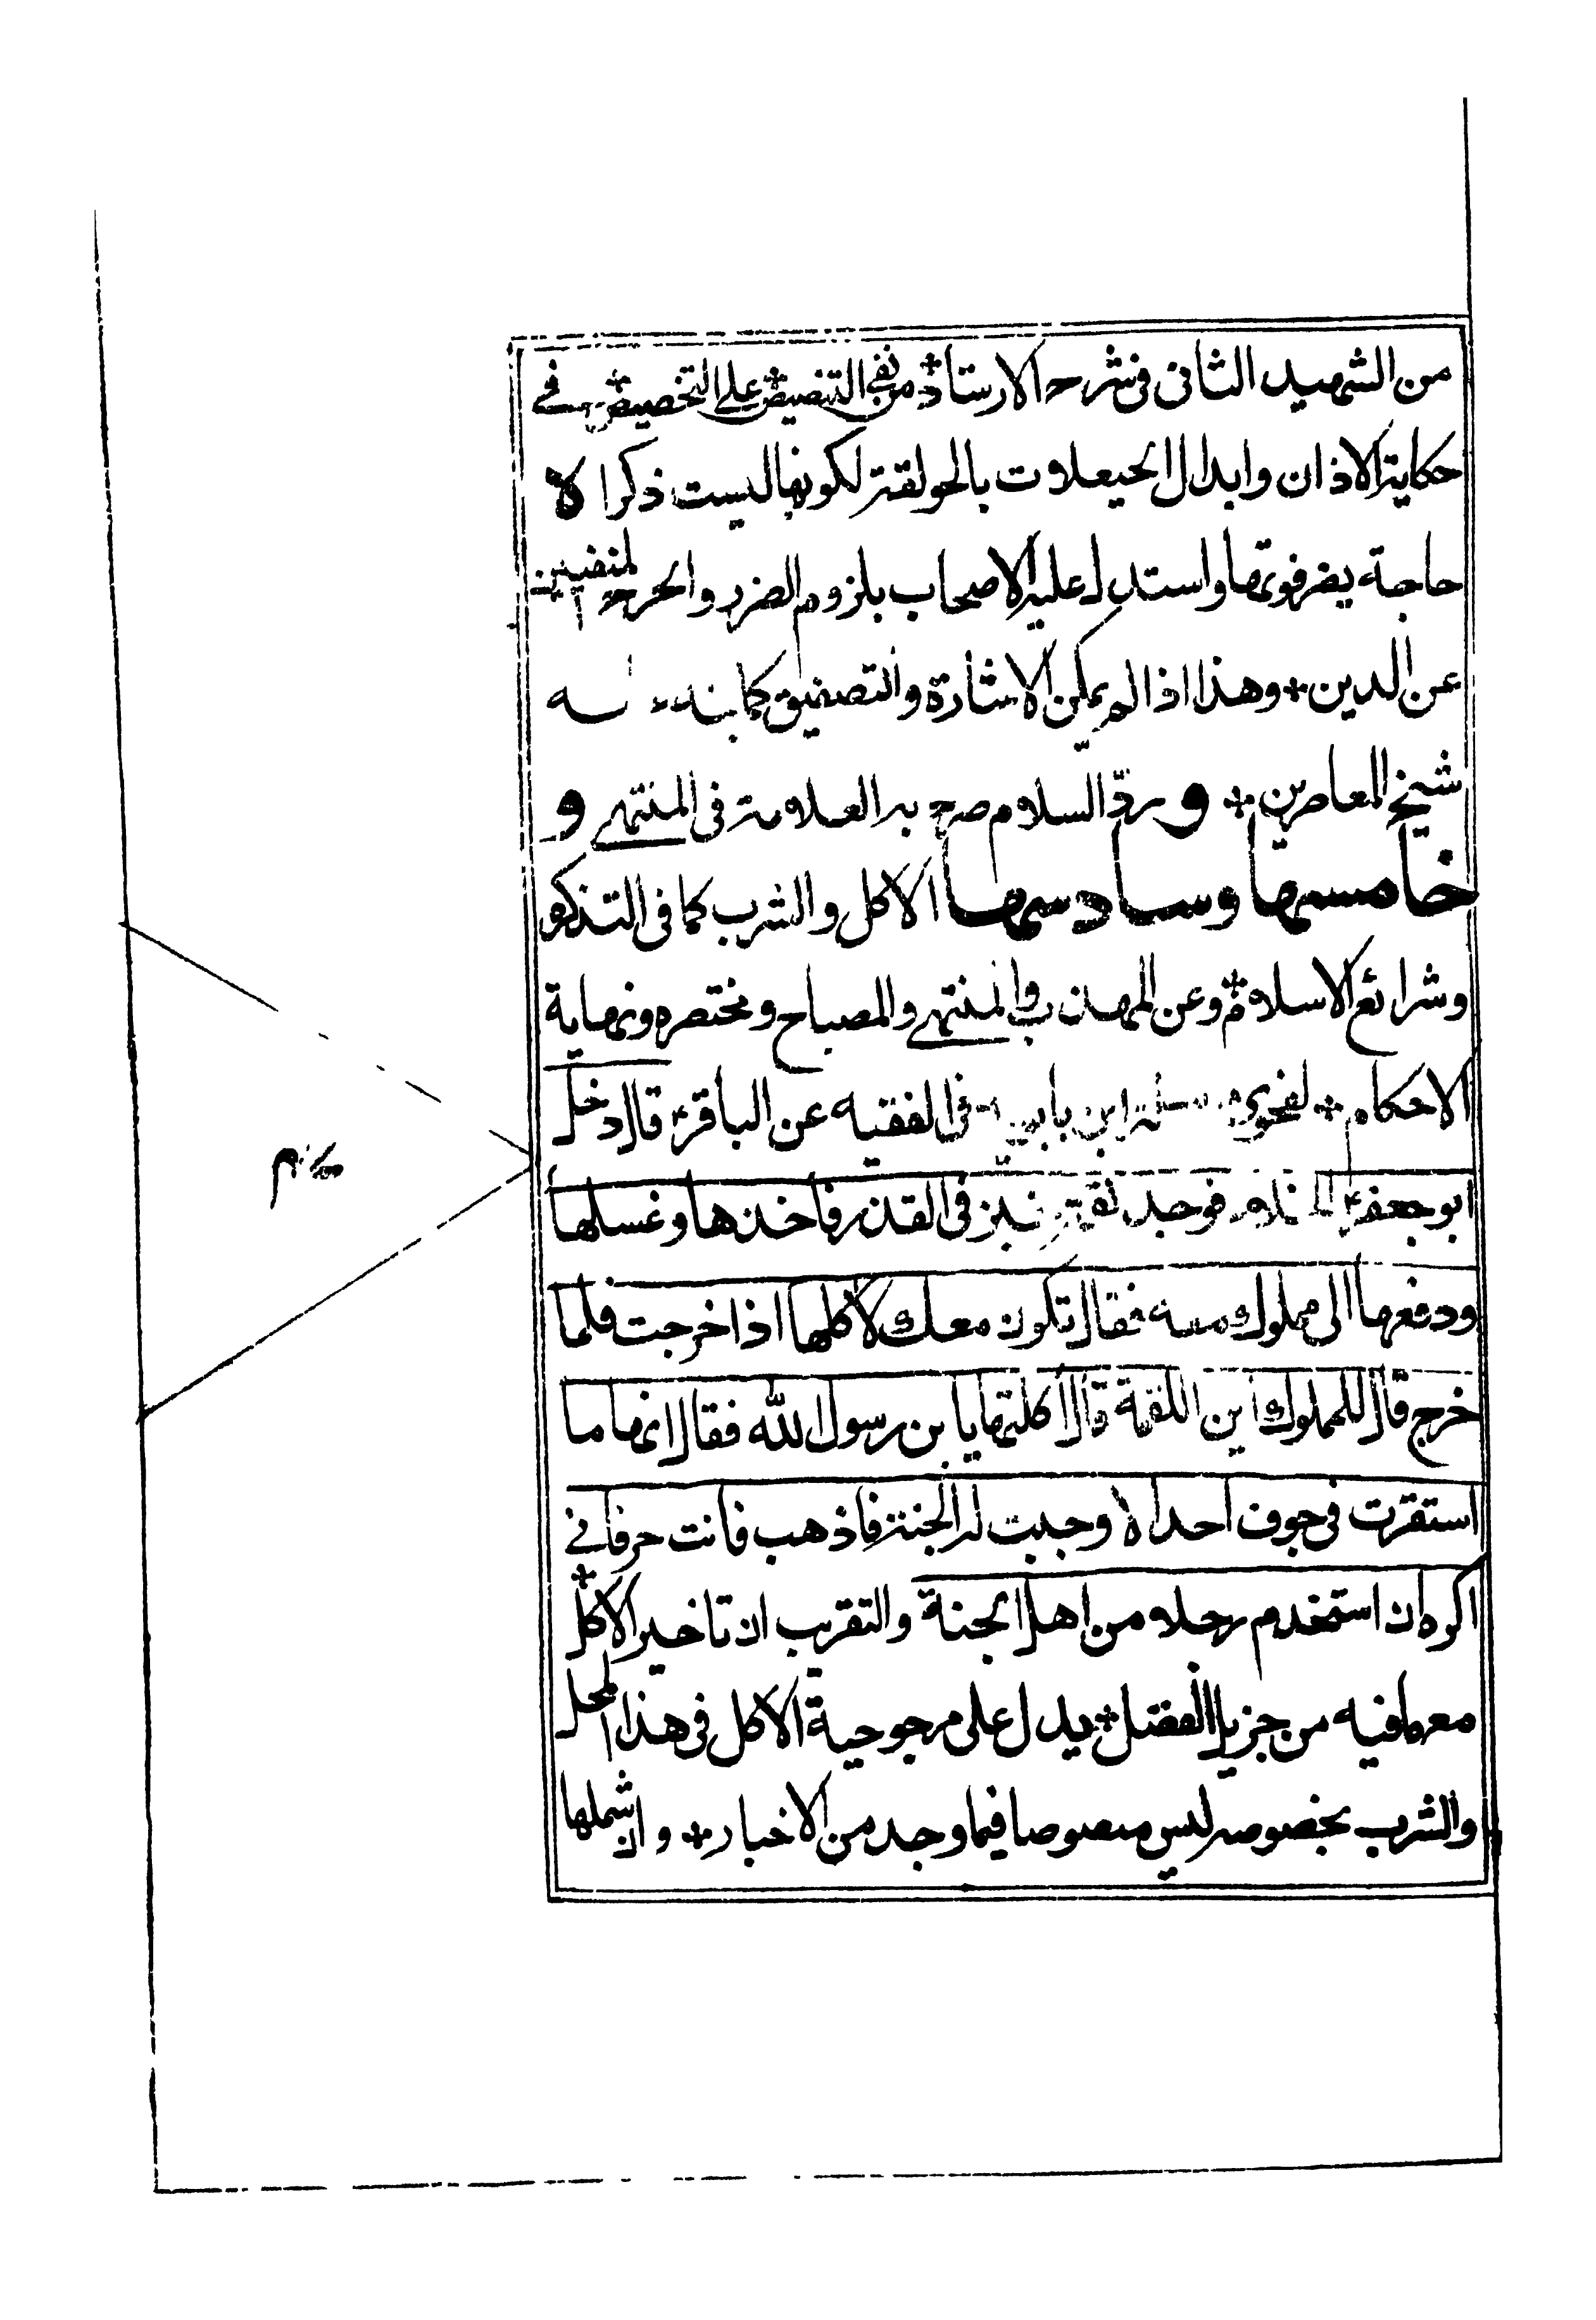 من الشهيد الثانى فى شرح الارشاد من نفى التنصيص على التخصيص فى
حكاية الاذان وابدال الحيعلات بالحولقة لكونها ليست ذكرا لا
حاجة يضر فوتها واستدل عليه الاصحاب بلزوم الضرر والحرج المنفيين
عن الدين وهذا اذا لم يمكن الاشارة والتصفيق كما
شيخ المعاصرين و ردّ السلام صرح به العلامة فى المنتهى و
خامسها وسادسها الاكل والشرب كما فى التذكرة
وشرائع الاسلام وعن المهذب والمنتهى والمصباح ومختصره ونهاية
الاحكام لفحوى ابن بابويه فى الفقيه عن الباقر ع قال دخل
ابو جعفر ع الخلاء فوجد لقمة خبز فى القذر فاخذها وغسلها
ودفعها الى مملوك معه فقال تكون معك لاكلها اذا خرجت فلما
خرج قال للمملوك اين اللقمة قال اكلتها يا بن رسول الله فقال انها ما
استقرت فى جوف احد الا وجبت له الجنة فاذهب فانت حر فانى
اكره ان استخدم رجلا من اهل الجنة والتقريب ان تاخير الاكل
مع ما فيه من جزيل الفضل يدل على مرجوحية الاكل فى هذا المحل
والشرب بخصوصه ليس منصوصا فيما وجد من الاخبار وان شملها